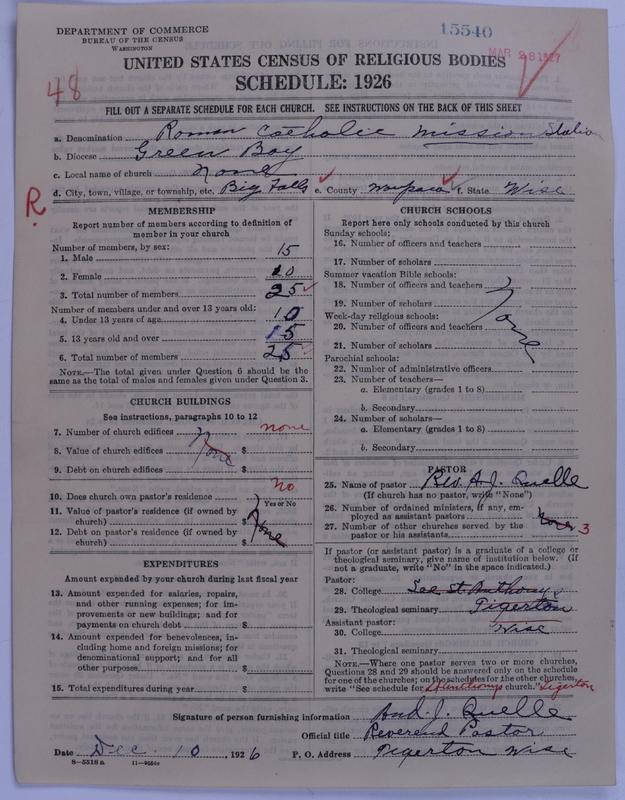 DEPARTMENT OF COMMERCE
BUREAU OF THE CENSUS
WASHINGTON
15540
MAR 28 1927
48
UNITED STATES CENSUS OF RELIGIOUS BODIES
SCHEDULE: 1926
FILL OUT A SEPARATE SCHEDULE FOR EACH CHURCH. SEE INSTRUCTIONS ON THE BACK OF THIS SHEET
a. Denomination Roman Catholic Mission Station
b. Diocese Green Bay
c. Local name of church None
d. City, town, village, or township, etc. Big Falls e. County Waupaca f. State Wisc
R
MEMBERSHIP
Report number of members according to definition of member in your church
Number of members, by sex:
1. Male 15
2. Female 10
3. Total number of members 25
Number of members under and over 13 years old:
4. Under 13 years of age 10
5. 13 years old and over 15
6. Total number of members 25
NOTE.—The total given under Question 6 should be
same as the total of males and females given under Question 3.
CHURCH BUILDINGS
See instructions, paragraphs 10 to 12
7. Number of church edifices none
8. Value of church edifices None $
9. Debt on church edifices $
10. Does church own pastor's residence No
Yes or No
11. Value of pastor's residence (if owned by
church) $ None
12. Debt on pastor's residence (if owned by
church) $
EXPENDITURES
Amount expended by your church during last fiscal year
13. Amount expended for salaries, repairs,
and other running expenses; for im-
provements or new buildings; and for
payments on church debt $
14. Amount expended for benevolences, in-
cluding home and foreign missions; for
denominational support; and for all
other purposes $
15. Total expenditures during year $
CHURCH SCHOOLS
Report here only schools conducted by this church
Sunday schools:
16. Number of officers and teachers
17. Number of scholars
Summer vacation Bible schools:
18. Number of officers and teachers
19. Number of scholars
None
Week-day religious schools:
20. Number of officers and teachers
21. Number of scholars
Parochial schools:
22. Number of administrative officers
23. Number of teachers—
a. Elementary (grades 1 to 8)
b. Secondary
24. Number of scholars—
a. Elementary (grades 1 to 8)
b. Secondary
PASTOR
25. Name of pastor Rev. A. J. Quelle
(If church has no pastor, write "None")
26. Number of ordained ministers, if any, em-
ployed as assistant pastors None
27. Number of other churches served by the
pastor or his assistants 3
If pastor (or assistant pastor) is a graduate of a college or
theological seminary, give name of institution below. (If
not a graduate, write "No" in the space indicated.)
Pastor:
28. College See St. Anthony's
29. Theological seminary Tigerton
Assistant pastor:
30. College Wisc
31. Theological seminary
NOTE.—Where one pastor serves two or more churches,
Questions 28 and 29 should be answered only on the schedule
for one of the churches; on the schedules for the other churches,
write "See schedule for St. Anthony church." Tigerton
Signature of person furnishing information And. J. Quelle
Official title Reverend Pastor
Date Dec. 10, 1926 P. O. Address Tigerton Wisc
8—5518 a 11—9554a